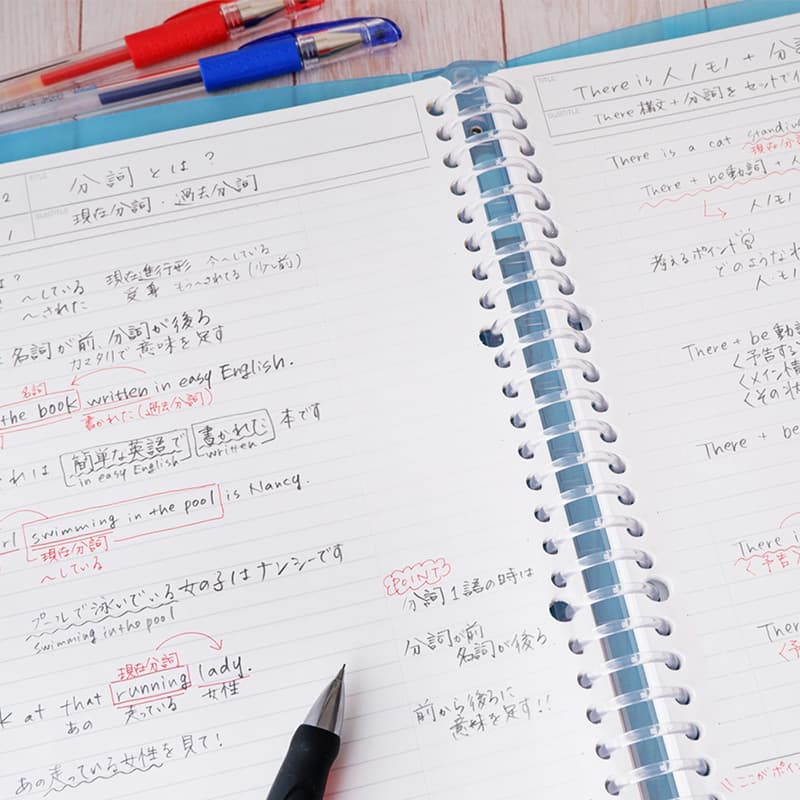 2
TITLE
分詞とは?
1
SUBTITLE
現在分詞・過去分詞
は?
〜している 現在進行形 今〜している
〜された 受身 もう〜されてる(少し前)
名詞が前、分詞が後ろ
カタマリで意味を足す
名詞
the book written in easy English.
書かれた(過去分詞)
れは 簡単な英語で 書かれた 本です
in easy English written
rl swimming in the pool is Nancy.
現在分詞
〜している
プールで泳いでいる女の子はナンシーです
swimming in the pool
現在分詞
k at that running lady.
あの 走っている 女性
あの走っている女性を見て!
POINT
分詞1語の時は
分詞が前
名詞が後ろ
前から後ろに
意味を足す!!
TITLE
There is 人/モノ + 分詞
SUBTITLE
There構文+分詞をセットで
There is a cat standin
現在分
There + be動詞 + 人
人/モノ
考えるポイント
どのような
人・モ
There + be動
〈予告する
〈メイン情
〈その状
There + be
There is
〈予告
There
〈予
ここがポイン